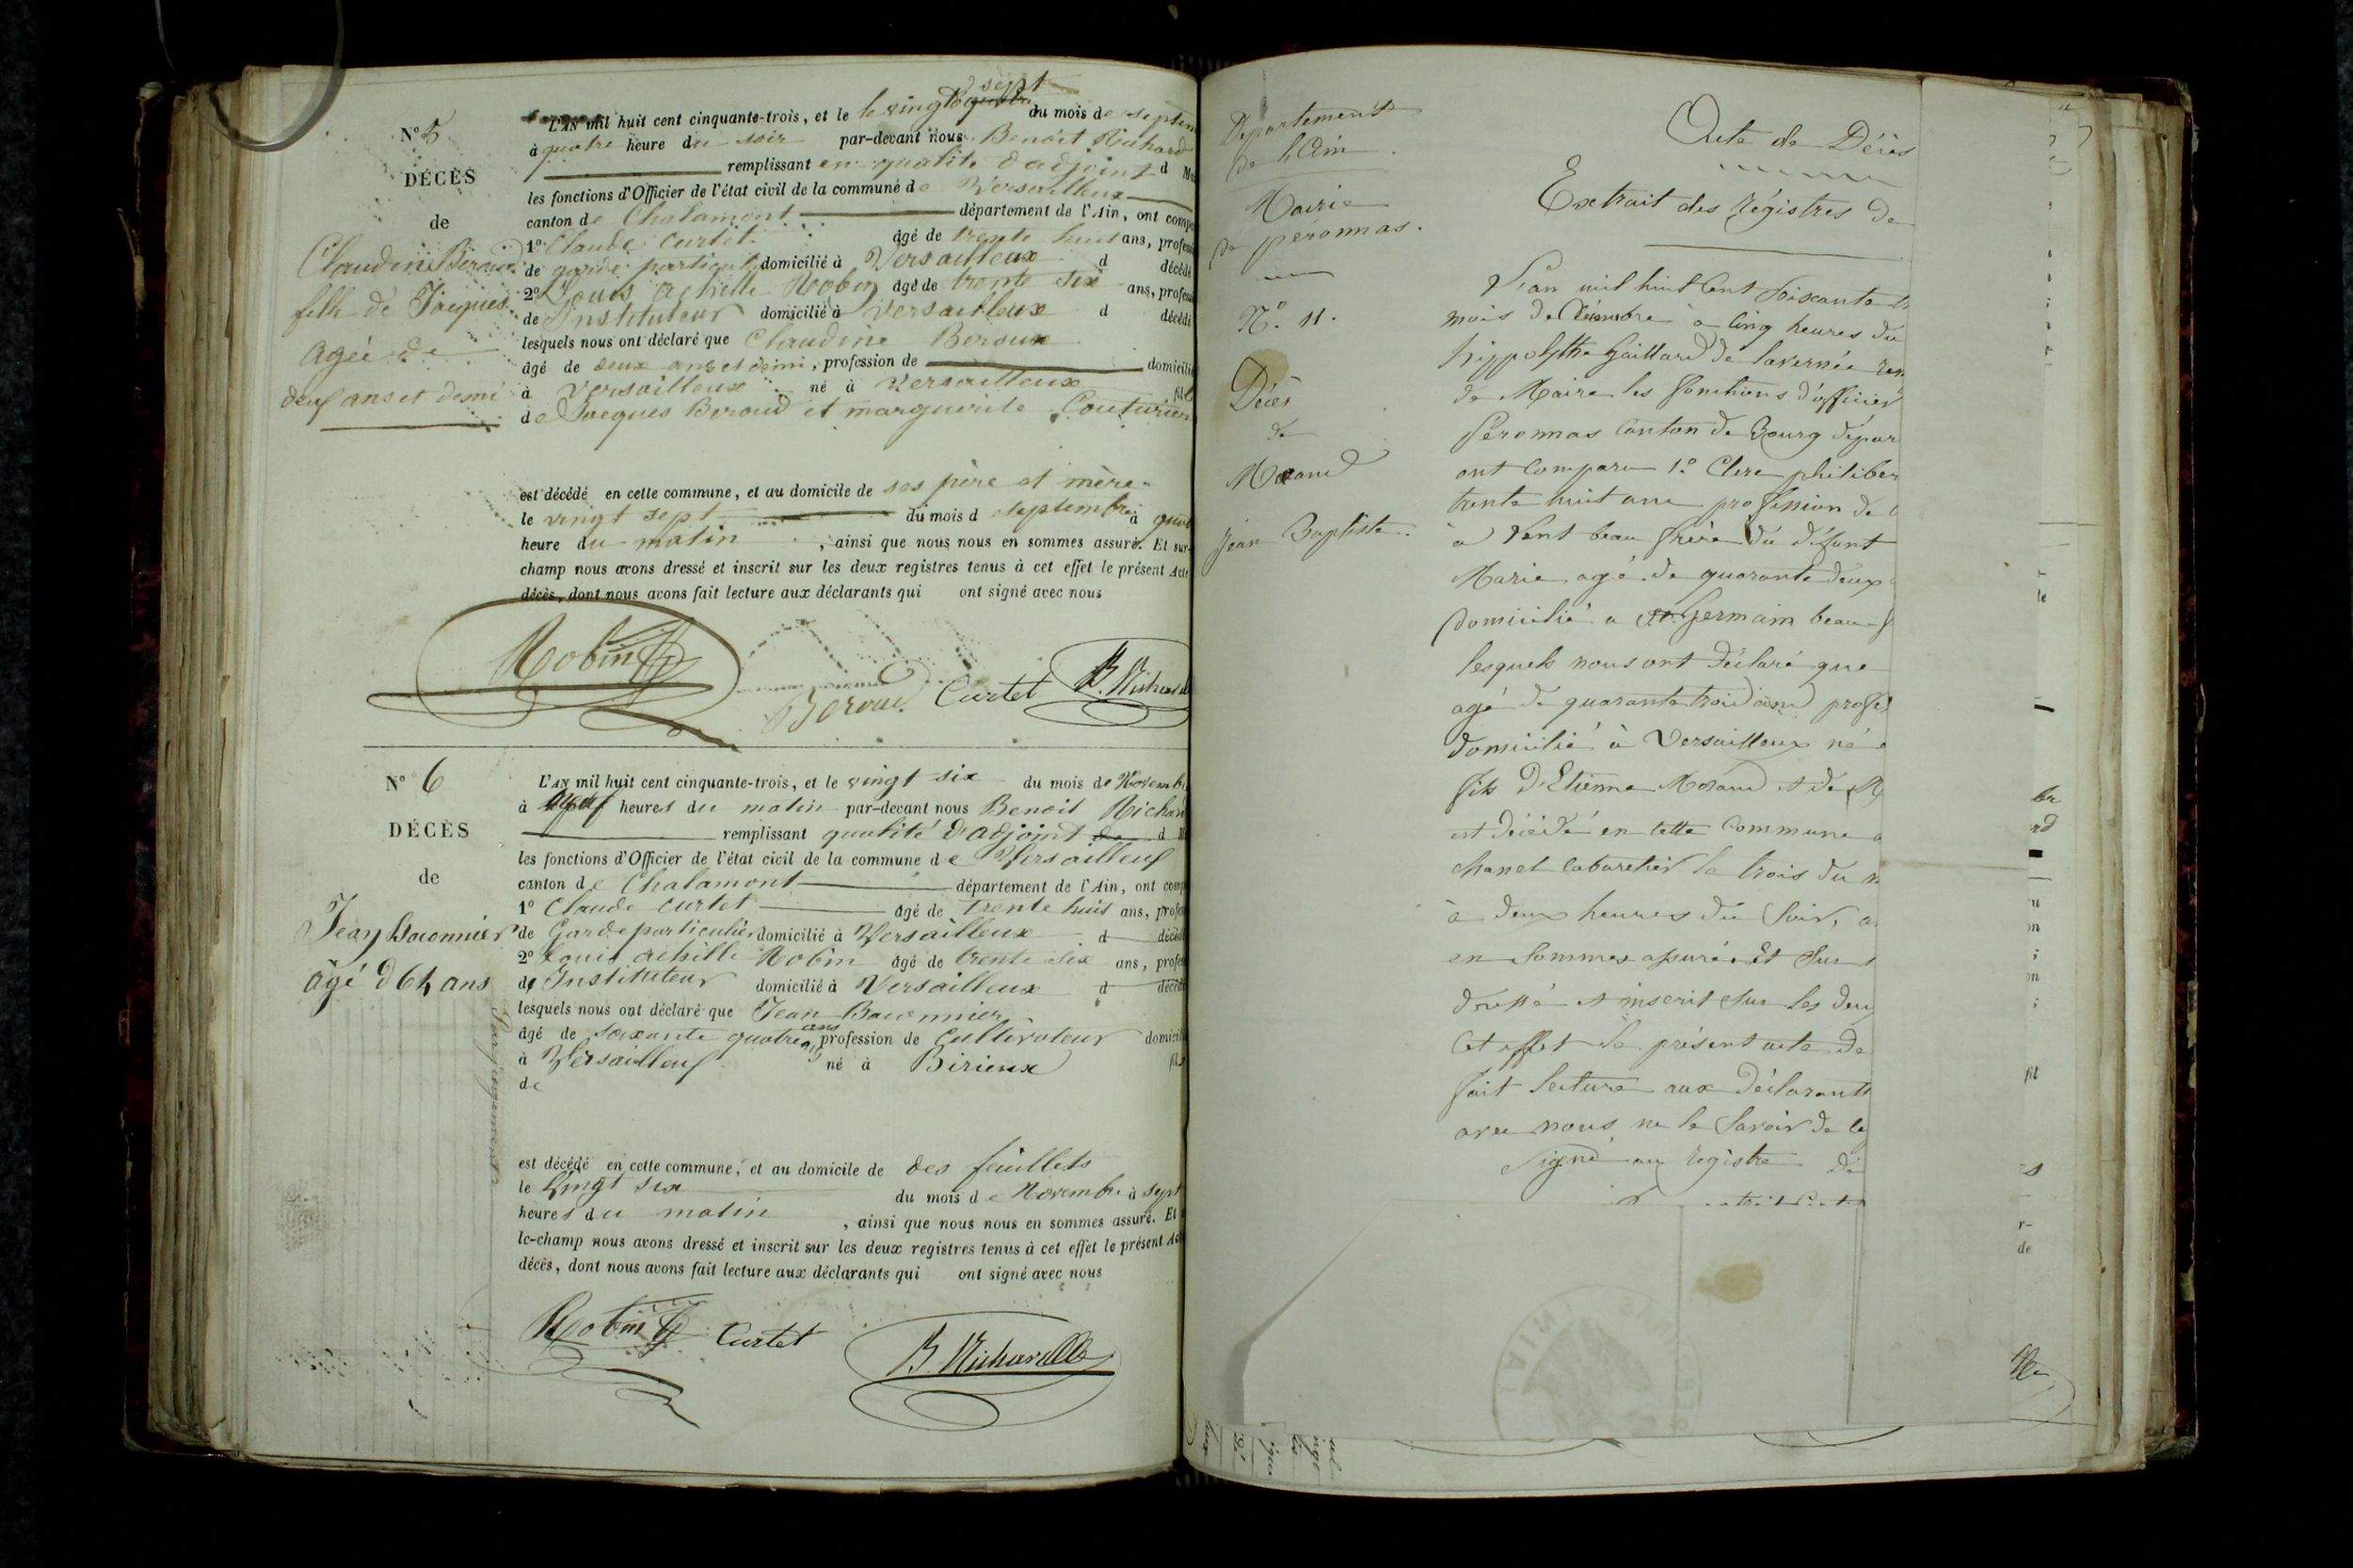 N° 5
DÉCÈS
de
Claudine Beroud
fille de Jacques
Agée de
deux ans et demi
sept
L'AN mil huit cent cinquante-trois, et le le vingt du mois de septem
à quatre heure du soir par-devant nous Benoit Richard
remplissant en qualité d'adjoint d M
les fonctions d'Officier de l'état civil de la commune de Versailleux
canton de Chalamont département de l'Ain, ont comp
1° Claude Curtet âgé de trente huit ans, profess
de garde particulier domicilié à Versailleux d décédé
2° Louis Achille Robin âgé de trente six ans, profess
de Instituteur domicilié à Versailleux d décédé
lesquels nous ont déclaré que Claudine Beroux
âgé de deux ans et demi, profession de domicilié
à Versailleux né à Versailleux fil
de Jacques Beroud et marguerite Couturier
est décédé en cette commune, et au domicile de ses père et mère
le vingt sept du mois d septembre à quat
heure du matin, ainsi que nous nous en sommes assuré. Et sur-
champ nous avons dressé et inscrit sur les deux registres tenus à cet effet le présent Acte
décès, dont nous avons fait lecture aux déclarants qui ont signé avec nous
Robin
Beroud Curtet B. Richard
N° 6
DÉCÈS
de
Jean Baronnier
âgé d 64 ans
L'AN mil huit cent cinquante-trois, et le vingt six du mois de Novemb
à heures du matin par-devant nous Benoit Richar
remplissant qualité d'adjoint de d M
les fonctions d'Officier de l'état civil de la commune de Versailleux
canton de Chalamont département de l'Ain, ont comp
1° Claude Curtet âgé de trente huit ans, profes
de Garde particulier domicilié à Versailleux d décéd
2° Louis Achille Robin âgé de trente six ans, profes
de Instituteur domicilié à Versailleux d décédé
lesquels nous ont déclaré que Jean Baronnier
ans
âgé de soixante quatre profession de Cultivateur domicil
à Versailleux né à Birieux fil
de
est décédé en cette commune, et au domicile de des feuillets
le vingt six du mois de Novembre à sept
heures du matin, ainsi que nous nous en sommes assuré. Et
le-champ nous avons dressé et inscrit sur les deux registres tenus à cet effet le présent Act
décès, dont nous avons fait lecture aux déclarants qui ont signé avec nous
Robin Curtet B. Richard
Departement
de l'Ain
Mairie
de peronnas.
N°. 11.
Décès
de
Morand
Jean Baptiste.
Acte de Décès
Extrait des Régistres de
L'an mil huit Cent Soixante
mois de Décembre à Cinq heures du
hippolythe Gaillard de Lavernée rem
de Maire les fonctions d'officier
Peronnas Canton de Bourg depar
ont Comparu 1°. Clere philiber
trente huit ans profession de
à Vent beau frère du défunt
Marie agé de quarante deux
Domicilié a St. Germain beau f
lesquels nous ont déclaré que
agé de quarante trois ans profes
domicilié à Versailleux né
fils d'Etienne Morand et de M
est décédé en cette Commune a
chanel Cabaretier le trois du m
à deux heures du Soir, a
en Sommes assuré. Et Sur
dressé et inscrit Sur les deux
Cet effet le présent acte de
fait lecture aux Déclarants
avec nous, ne le Savoir de le
Signé au registre de